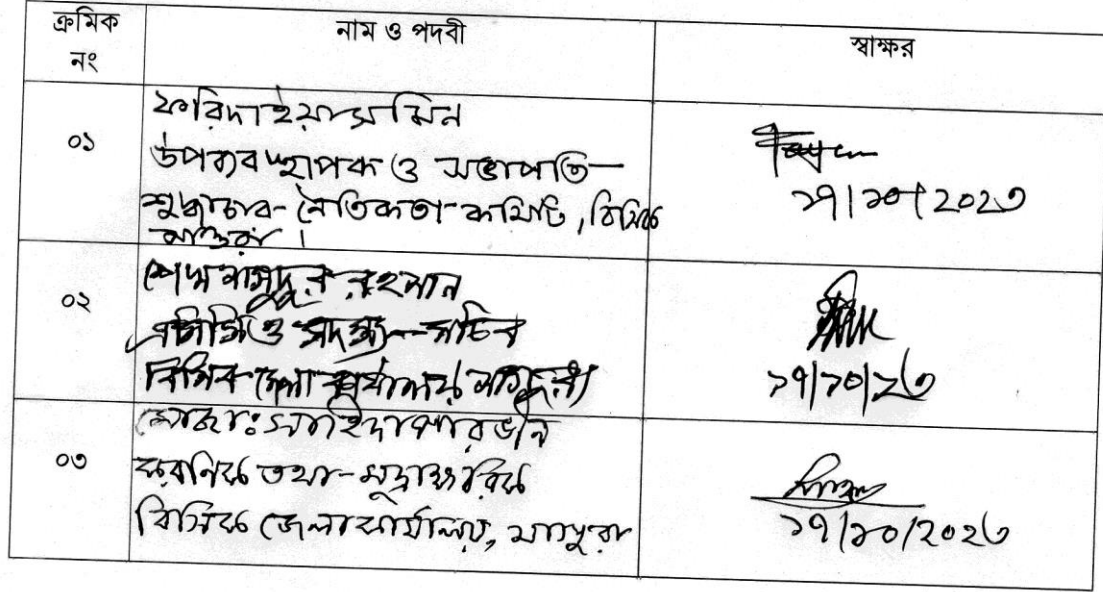 ক্রমিক নং নাম ও পদবী স্বাক্ষর
০১ ফরিদা ইয়াসমিন
উপব্যবস্থাপক ও সভাপতি
শুদ্ধাচার নৈতিকতা কমিটি, বিসিক
মাগুরা।
১৭/১০/২০২৩
০২ শেখ মাসুদুর রহমান
ও সদস্য-সচিব
বিসিক জেলা কার্যালয় মাগুরা
১৭/১০/২৩
০৩ মোছা: পারভীন
করনিক তথা-মুদ্রাক্ষরিক
বিসিক জেলা কার্যালয়, মাগুরা
১৭/১০/২০২৩